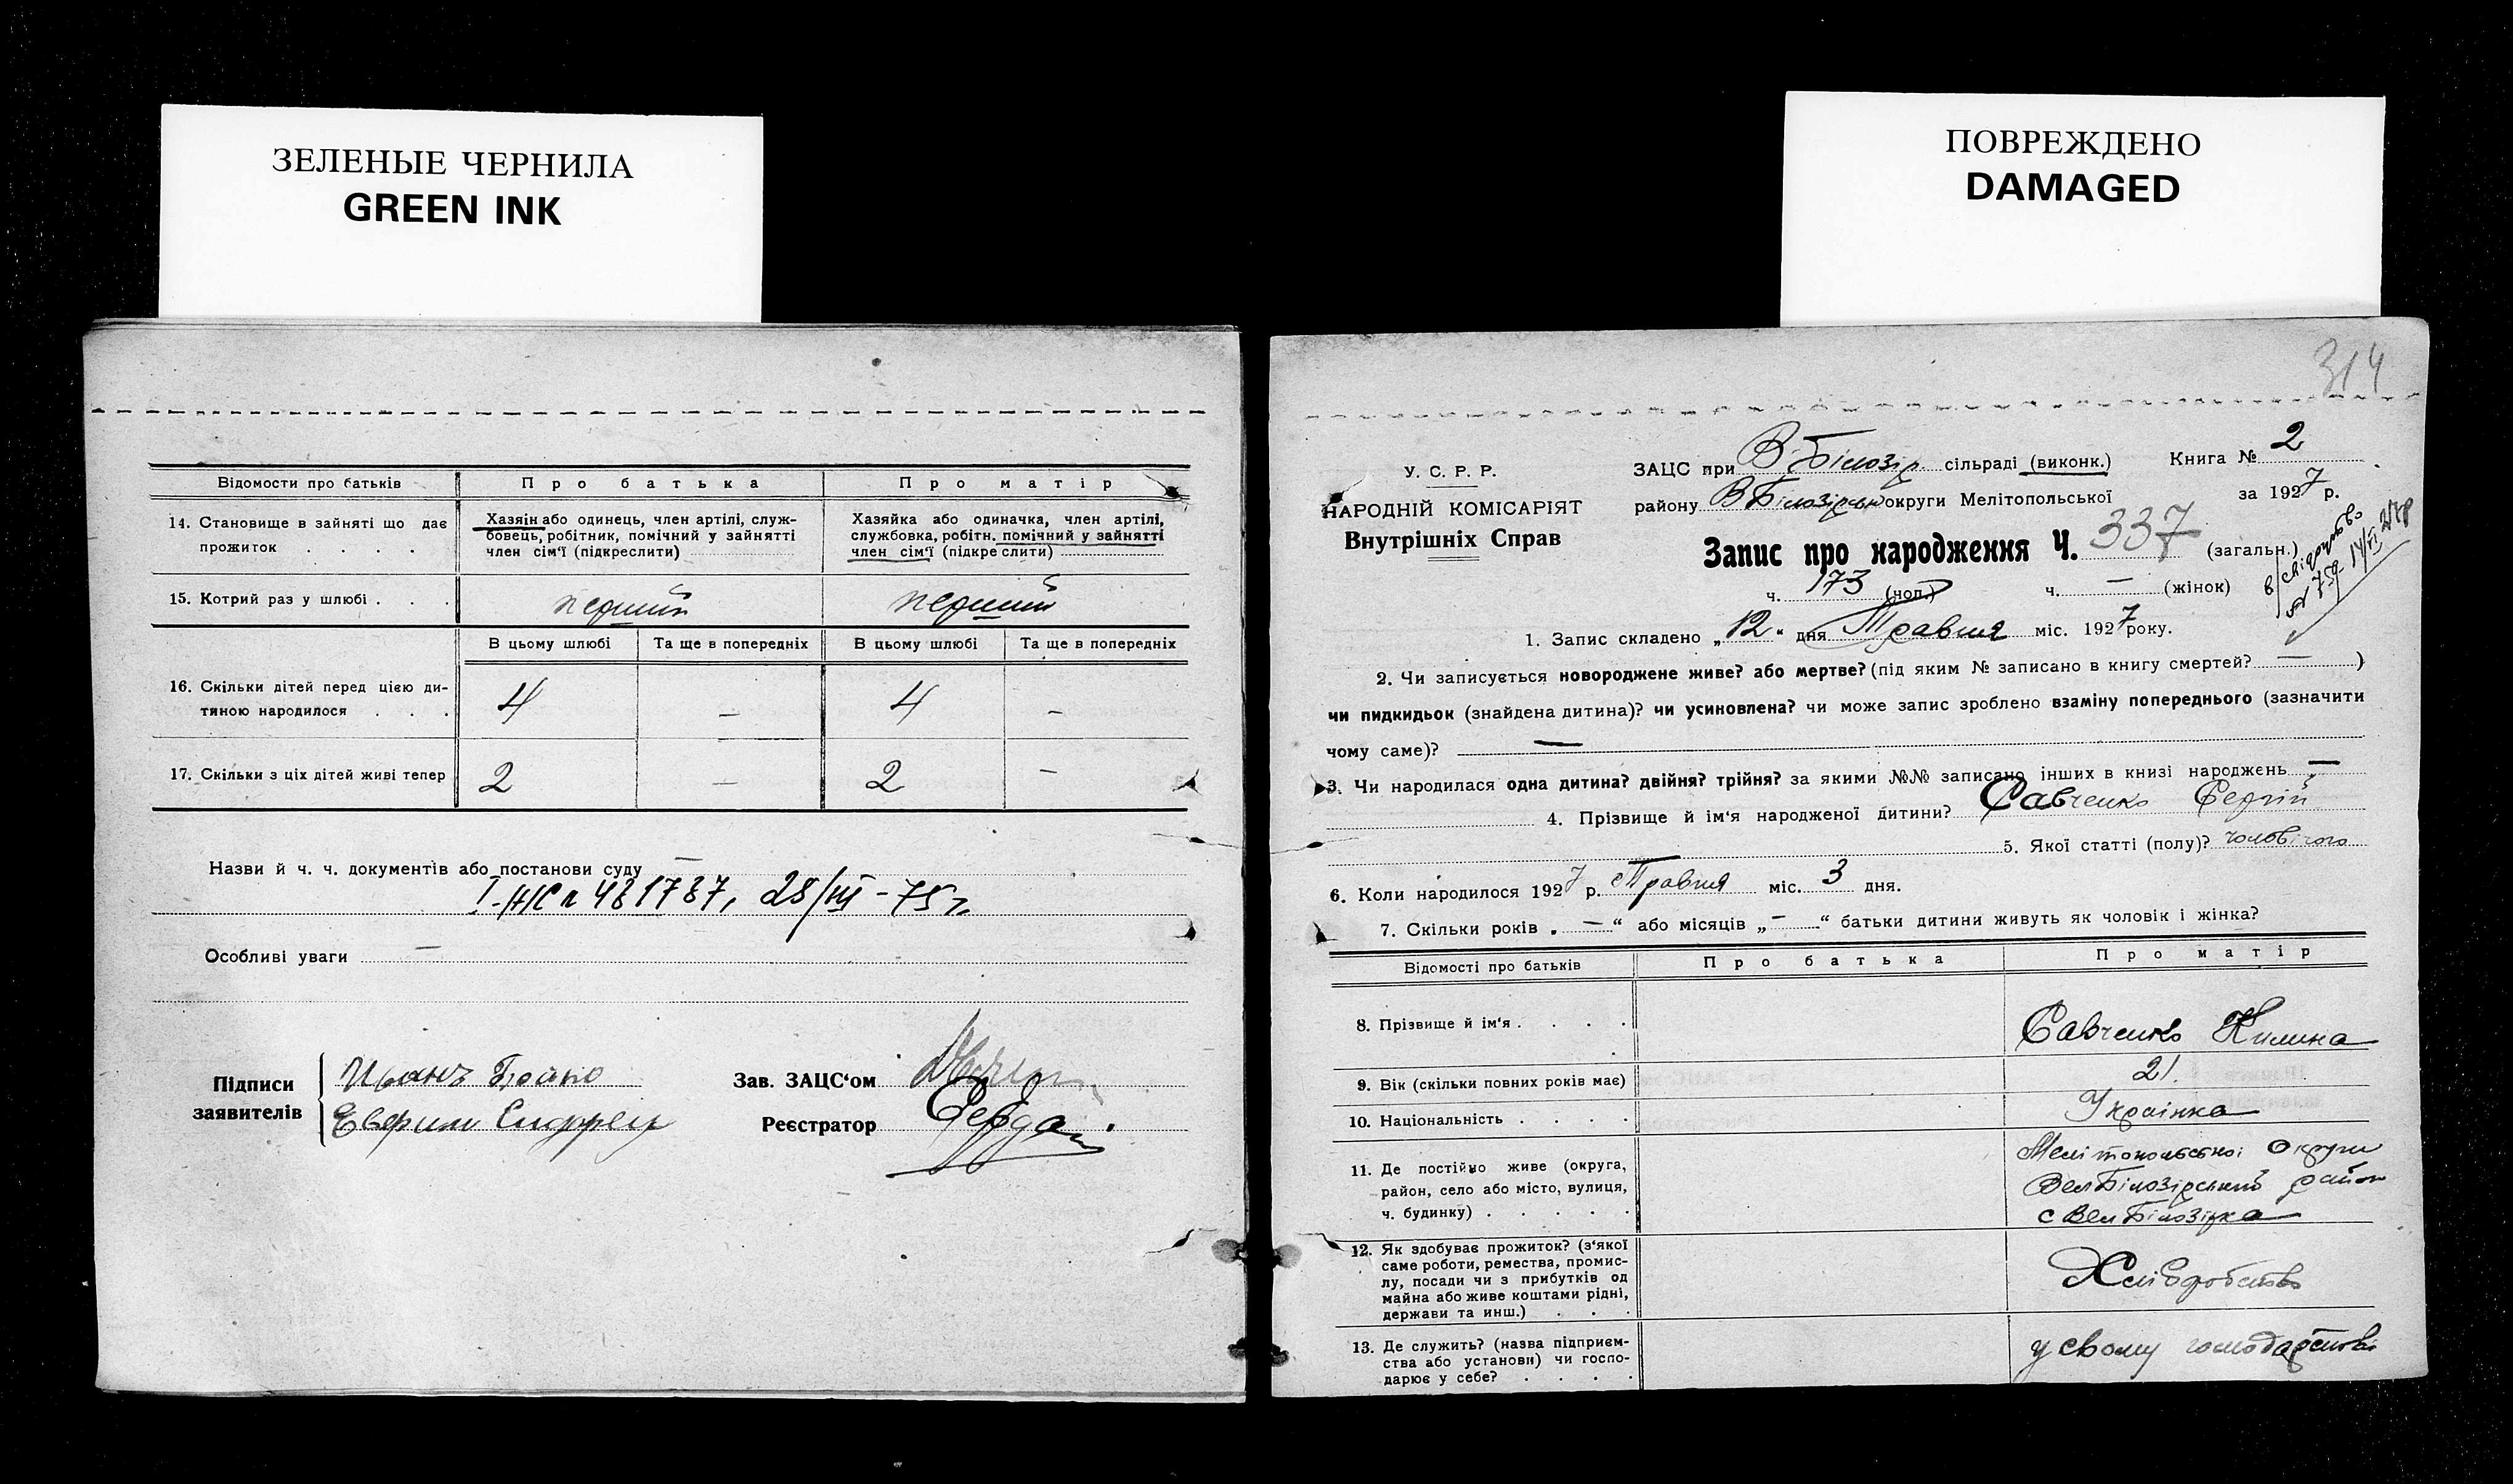 ЗЕЛЕНЫЕ ЧЕРНИЛА
GREEN INK
Відомости про батьків
Про батька
Про матір
14. Становище в зайняті що дає
прожиток . . . .
Хазяін або одинець, член артілі, служ-
бовець, робітник, помічний у зайнятті
член сім'ї (підкреслити)
Хазяйка або одиначка, член артілі,
службовка, робітн. помічний у зайнятті
член сім'ї (підкреслити)
15. Котрий раз у шлюбі . . .
перший
перший
В цьому шлюбі
Та ще в попередніх
В цьому шлюбі
Та ще в попередніх
16. Скільки дітей перед цією ди-
тиною народилося . . .
4 — 4 —
17. Скільки з ціх дітей живі тепер
2 — 2 —
Назви й ч. ч. документів або постанови суду —
28/III - 75 г.
Особливі уваги —
Підписи
заявителів
Иванъ Бойко
Зав. ЗАЦС'ом
Реєстратор
ПОВРЕЖДЕНО
DAMAGED
314
У. С. Р. Р.
НАРОДНІЙ КОМІСАРІЯТ
Внутрішніх Справ
ЗАЦС при В Білозір. сільраді (виконк.) Книга № 2
району В Білозірськ округи Мелітопольської за 1927 р.
Запис про народження Ч. 337 (загальн.)
ч. 173 (чол.) ч. — (жінок)
1. Запис складено „12" дня Травня міс. 1927 року.
2. Чи записується новороджене живе? або мертве? (під яким № записано в книгу смертей? — )
чи пидкидьок (знайдена дитина)? чи усиновлена? чи може запис зроблено взаміну попереднього (зазначити
чому саме)? —
3. Чи народилася одна дитина? двійня? трійня? за якими №№ записано інших в книзі народжень —
4. Прізвище й ім'я народженої дитини? Савченко Сергій
5. Якої статті (полу)? чоловічого
6. Коли народилося 1927 р. Травня міс. 3 дня.
7. Скільки років „ — " або місяців „ — " батьки дитини живуть як чоловік і жінка?
Відомості про батьків
Про батька
Про матір
8. Прізвище й ім'я . . . .
Савченко Килина
9. Вік (скільки повних років має)
21.
10. Національність . . . .
Українка
11. Де постійно живе (округа,
район, село або місто, вулиця,
ч. будинку) . . . . .
Мелітопольської Округи
Вел Білозірський район
с Вел Білозірка
12. Як здобуває прожиток? (з'якої
саме роботи, ремества, промис-
лу, посади чи з прибутків од
майна або живе коштами рідні,
держави та инш.) . . .
Хліборобство
13. Де служить? (назва підприєм-
ства або установи) чи госпо-
дарює у себе? . . . .
у свому господарстві